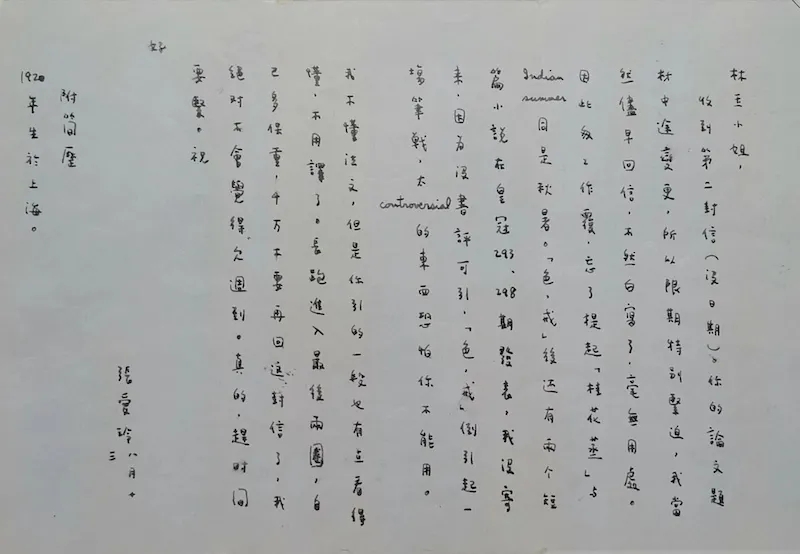 林 小姐,
收到第二封信(沒日期)。你的論文題
材中途變更,所以限期特別緊迫,我當
然儘早回信,不然白寫了,毫無用處。
因此匆匆作覆,忘了提起「桂花蒸」与
Indian summer 同是秋暑。「色,戒」後还有兩个短
篇小說在皇冠293、298期發表,我沒寄
來,因為沒書評可引,「色,戒」倒引起一
場筆戰,太controversial的東西恐怕你不能用。
我不懂法文,但是你引的一段也有点看得
懂,不用譯了。長跑進入最後兩圈,自
己多保重,千万不要再回這封信了,我
絕對不會覺得欠週到。真的,趕时间
要緊。祝
好
張愛玲 八月廿三
附简歷
1920年生於上海。